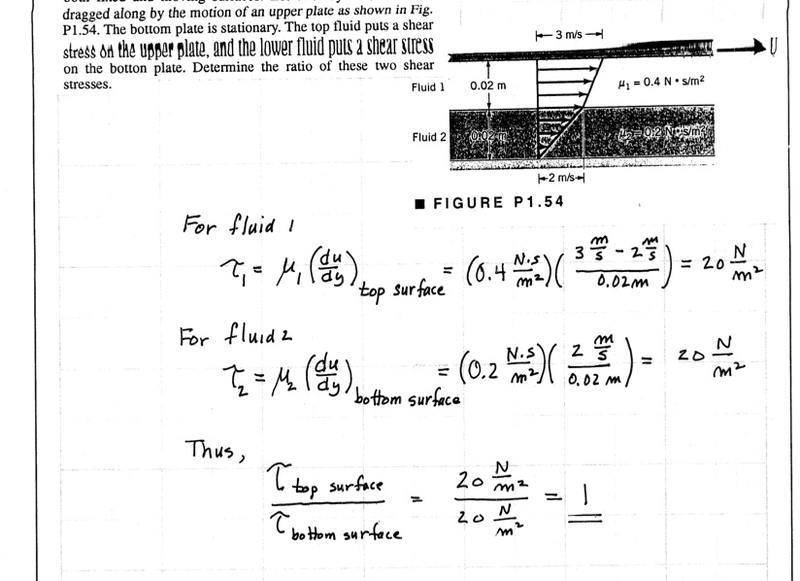 dragged along by the motion of an upper plate as shown in Fig.
P1.54. The bottom plate is stationary. The top fluid puts a shear
stress on the upper plate, and the lower fluid puts a shear stress
on the botton plate. Determine the ratio of these two shear
stresses.
3 m/s
U
Fluid 1
0.02 m
μ₁ = 0.4 N • s/m²
Fluid 2
0.02 m
μ₂ = 0.2 N • s/m²
2 m/s
■ FIGURE P1.54
For fluid 1
τ₁ = μ₁ (du/dy) top surface = (0.4 N.s/m²)((3 m/s - 2 m/s)/0.02m) = 20 N/m²
For fluid 2
τ₂ = μ₂ (du/dy) bottom surface = (0.2 N.s/m²)((2 m/s)/0.02 m) = 20 N/m²
Thus,
τ top surface / τ bottom surface = (20 N/m²)/(20 N/m²) = 1